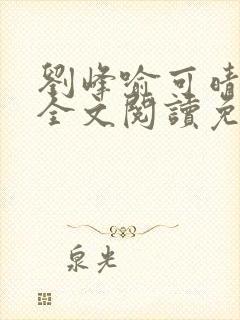 劉峰喻可晴
全文閱讀免
泉光